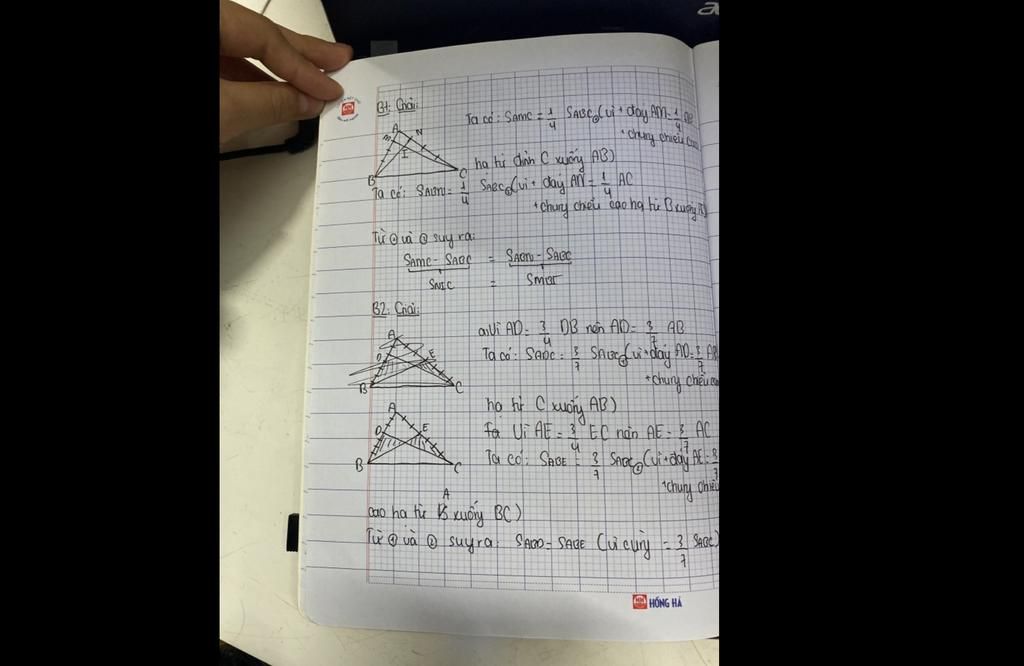 B1: Giải:
Ta có: SAMC = 1/4 SABC ① (vì + đáy AM = 1/4 AB
+ chung chiều cao
A
M
N
I
B
C
hạ từ đỉnh C xuống AB)
Ta có: SABN = 1/4 SABC ② (vì + đáy AN = 1/4 AC
+ chung chiều cao hạ từ B xuống AC)
Từ ① và ② suy ra:
SAMC - SABC = SABN - SABC
SNIC = SMBI
B2: Giải:
a. Vì AD = 3/4 DB nên AD = 3/7 AB
Ta có: SADC = 3/7 SABC ① (vì + đáy AD = 3/7 AB
+ chung chiều cao
A
D
E
B
C
hạ từ C xuống AB)
Vì AE = 3/4 EC nên AE = 3/7 AC
Ta có: SABE = 3/7 SABC ② (vì + đáy AE = 3/7
+ chung chiều
A
D
E
B
C
cao hạ từ A xuống BC)
Từ ① và ② suy ra: SABD = SABE (vì cùng = 3/7 SABC)
HỒNG HÀ